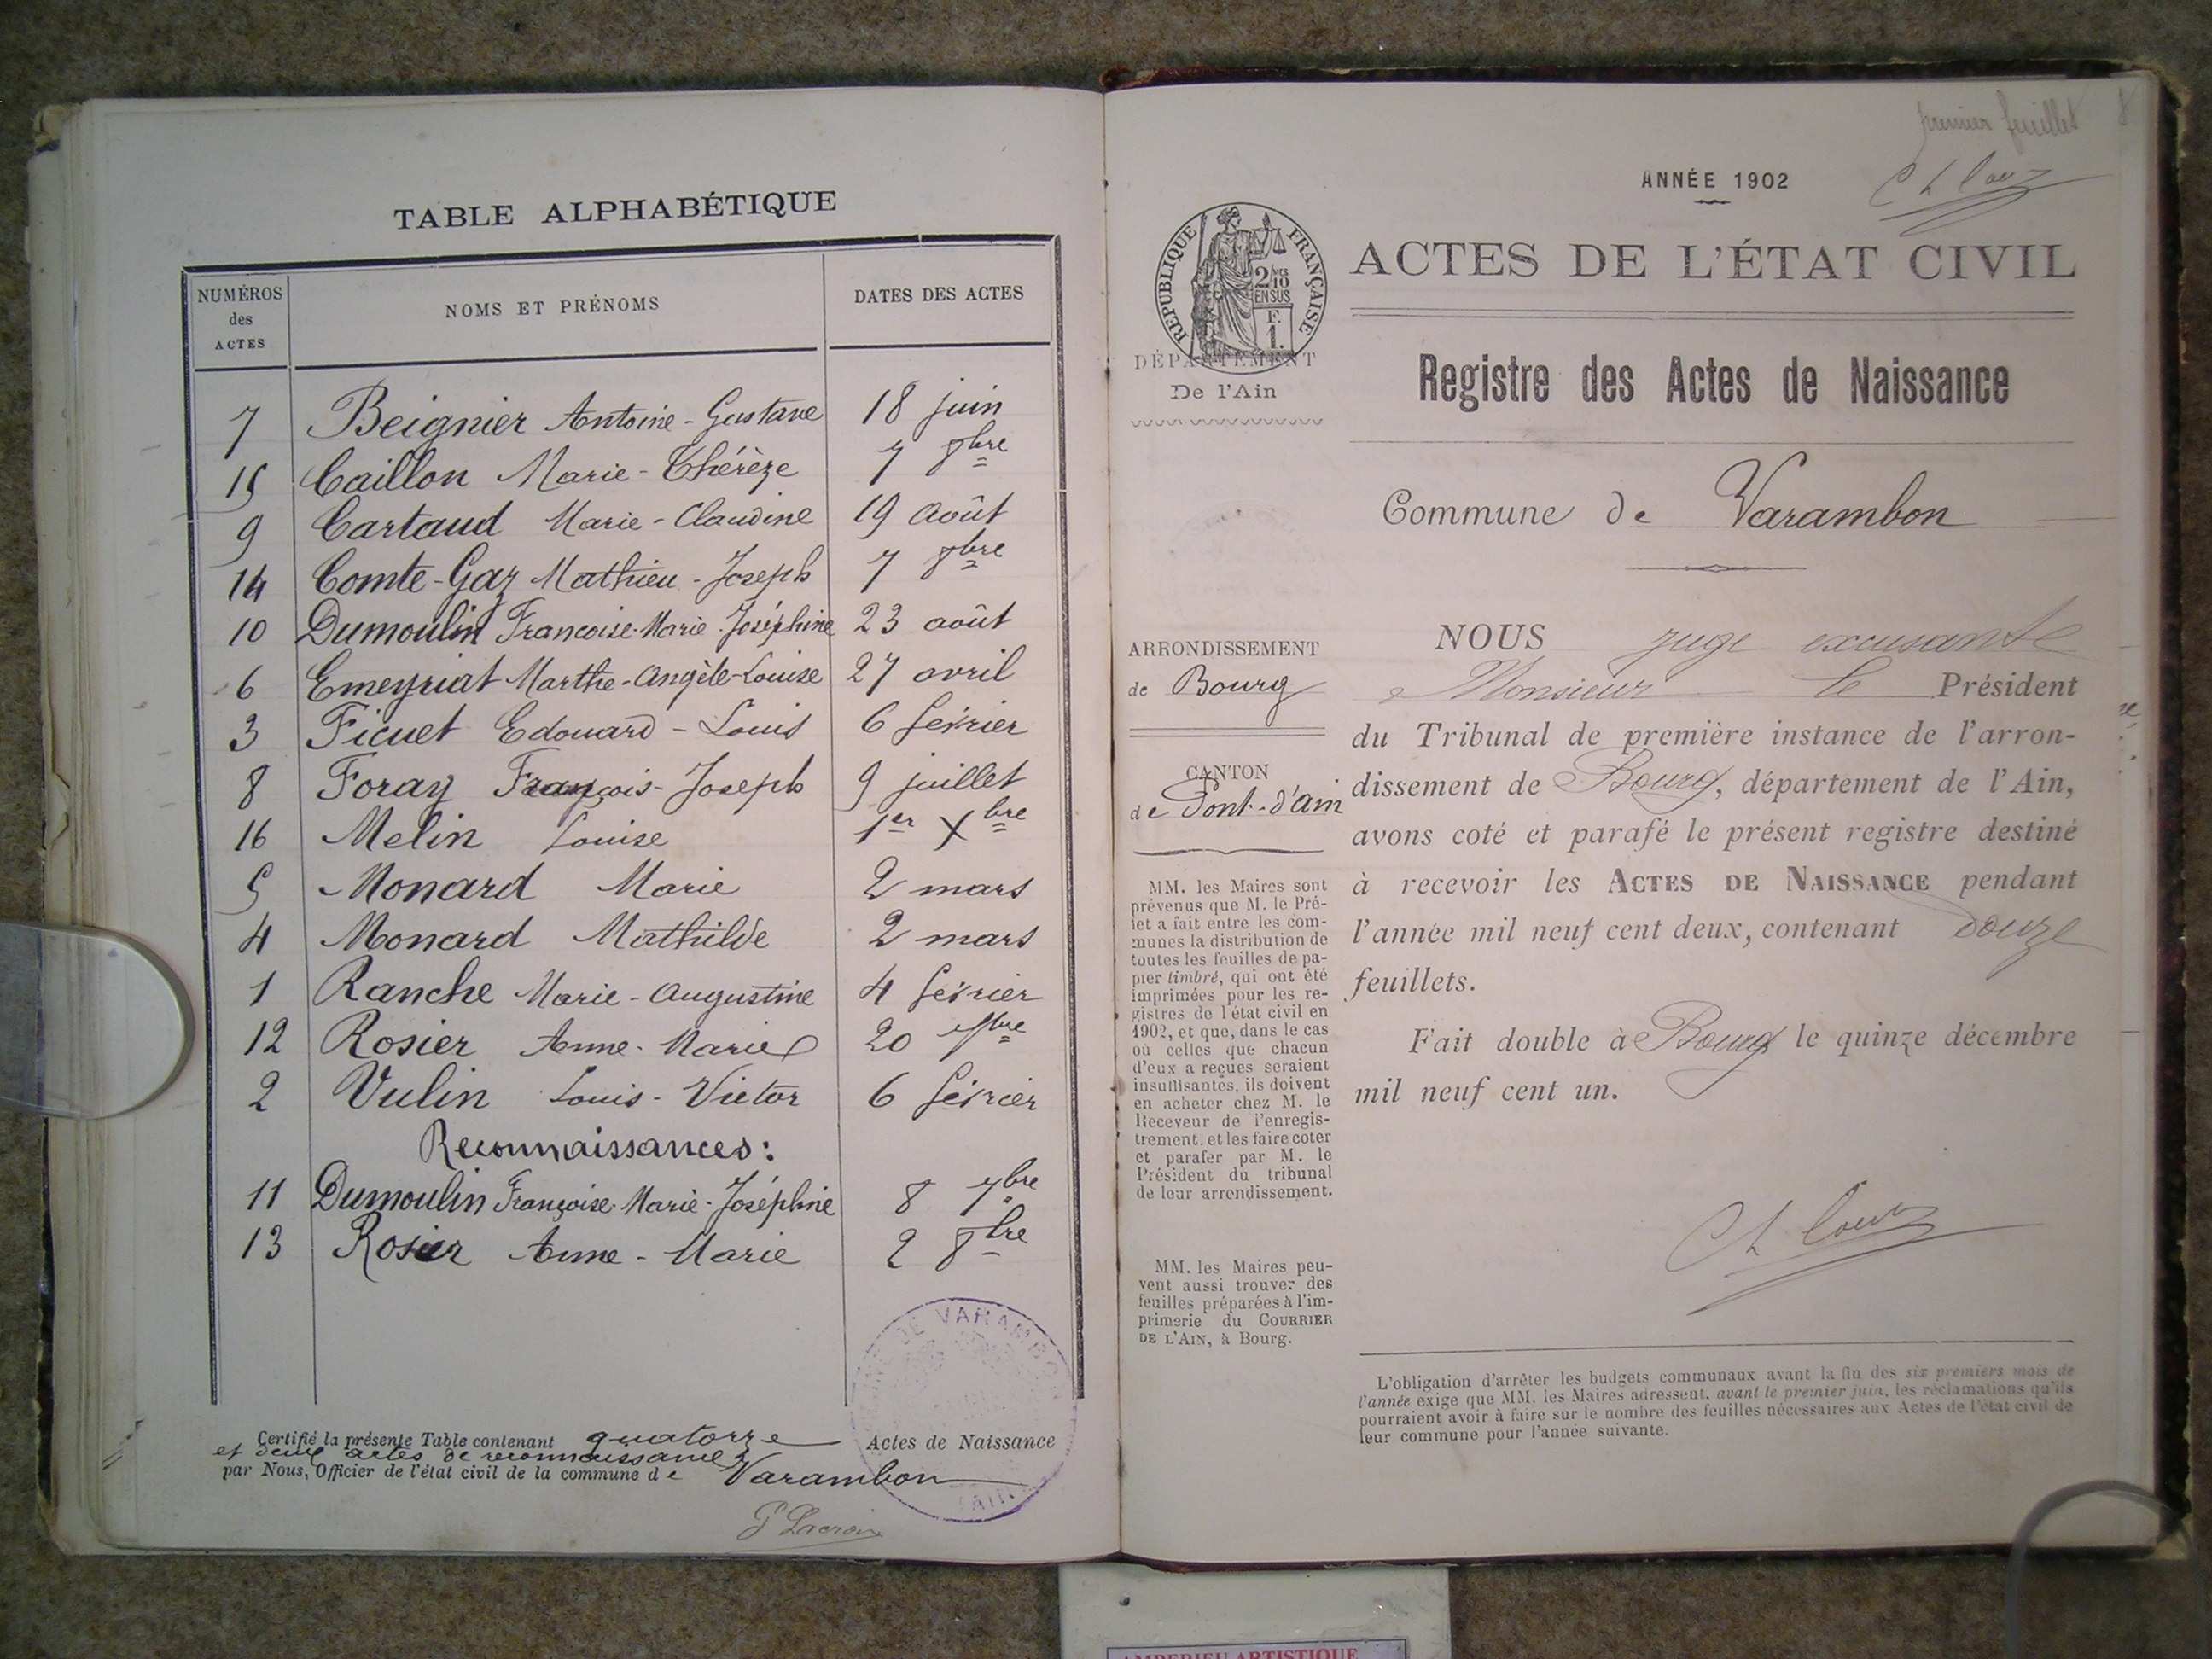 TABLE ALPHABÉTIQUE
NUMÉROS des ACTES NOMS ET PRÉNOMS DATES DES ACTES
7 Beignier Antoine-Gustave 18 juin
15 Caillon Marie-Thérèze 7 8bre
9 Cartaud Marie-Claudine 19 Août
14 Comte-Gaz Mathieu-Joseph 7 8bre
10 Dumoulin Francoise-Marie-Joséphine 23 août
6 Emeyriat Marthe-Angèle-Louise 27 avril
3 Ficuet Edouard-Louis 6 février
8 Foray François-Joseph 9 juillet
16 Melin Louise 1er Xbre
5 Monard Marie 2 mars
4 Monard Mathilde 2 mars
1 Ranche Marie-Augustine 4 février
12 Rosier Anne-Marie 20 7bre
2 Vulin Louis-Victor 6 février
Reconnaissances:
11 Dumoulin Françoise-Marie-Joséphine 8 7bre
13 Rosier Anne-Marie 2 8bre
DE VARAMBON
AIN
Certifié la présente Table contenant quatorze Actes de Naissance
et deux actes de reconnaissance
par Nous, Officier de l'état civil de la commune de Varambon
P Lacroix
premier feuillet
8
ANNÉE 1902
RÉPUBLIQUE FRANÇAISE
2/10 EN SUS
F. 1.
ACTES DE L'ÉTAT CIVIL
DÉPARTEMENT
De l'Ain
Registre des Actes de Naissance
Commune de Varambon
ARRONDISSEMENT
de Bourg
CANTON
de Pont-d'ain
MM. les Maires sont
prévenus que M. le Pré-
fet a fait entre les com-
munes la distribution de
toutes les feuilles de pa-
pier timbré, qui ont été
imprimées pour les re-
gistres de l'état civil en
1902, et que, dans le cas
où celles que chacun
d'eux a reçues seraient
insuffisantes, ils doivent
en acheter chez M. le
Receveur de l'enregis-
trement, et les faire coter
et parafer par M. le
Président du tribunal
de leur arrondissement.
MM. les Maires peu-
vent aussi trouver des
feuilles préparées à l'im-
primerie du COURRIER
DE L'AIN, à Bourg.
NOUS juge
Monsieur le Président
du Tribunal de première instance de l'arron-
dissement de Bourg, département de l'Ain,
avons coté et parafé le présent registre destiné
à recevoir les ACTES DE NAISSANCE pendant
l'année mil neuf cent deux, contenant douze
feuillets.
Fait double à Bourg le quinze décembre
mil neuf cent un.
L'obligation d'arrêter les budgets communaux avant la fin des six premiers mois de
l'année exige que MM. les Maires adressent, avant le premier juin, les réclamations qu'ils
pourraient avoir à faire sur le nombre des feuilles nécessaires aux Actes de l'état civil de
leur commune pour l'année suivante.
AMPERIEU ARTISTIQUE